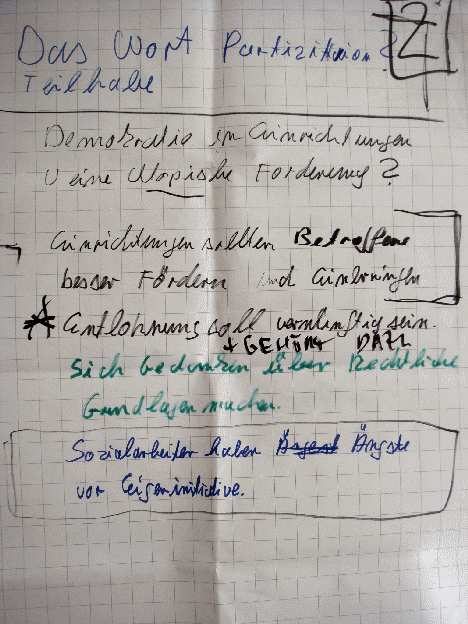 Das Wort Partizitation?
2
Teilhabe
Demokratie in Einrichtungen
U eine Utopische Forderung?
Einrichtungen sollten Betroffene
besser Fördern und
Entlohnung soll vernünftig sein.
+ GEHÖRT DAZU
Sich Gedanken über Rechtliche
Grundlagen machen.
Sozialarbeiter haben Ängste
vor Eigeninitiative.